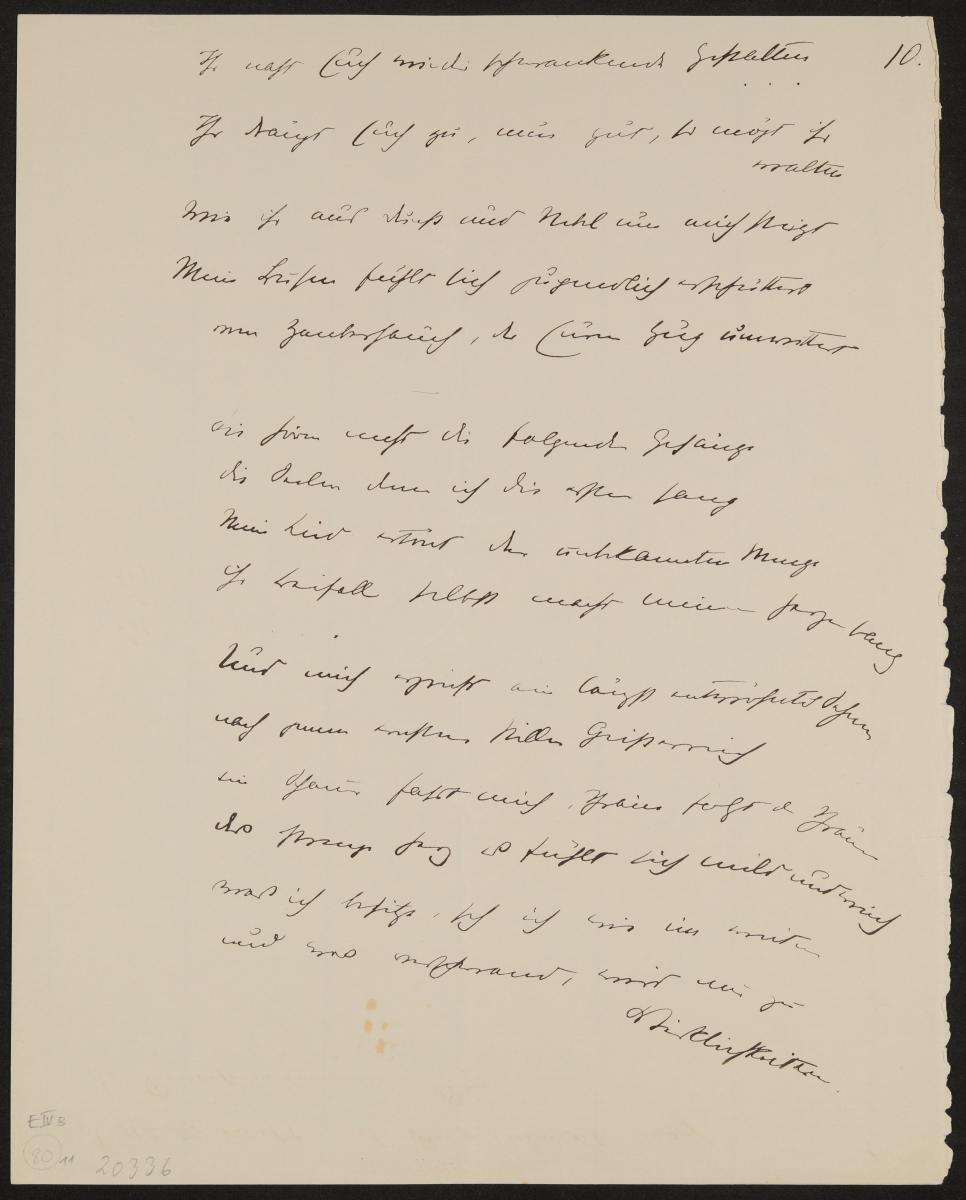 Ihr naht Euch wieder schwankende Gestalten 10.
. . .
Ihr drängt Euch zu, nun gut, so mögt ihr
walten
Wie ihr aus Dunst und Nebel um mich steigt
Mein Busen fühlt sich jugendlich erschüttert
vom Zauberhauch, der Euren Zug umwittert
Sie hören nicht die folgenden Gesänge
die Seelen denen ich die ersten sang
Mein Leid ertönt der unbekannten Menge
ihr Beifall selbst macht meinem Herzen bang
Und mich ergreift ein längst entwöhntes Sehnen
nach jenem ernsten stillen Geisterreich
ein Schauer fasst mich, Thräne folgt der Thräne
das strenge Herz es fühlt sich mild und weich
was ich besitze, seh ich wie im weiten
und was verschwand, wird mir zu
Wirklichkeiten.
E IV B
20 11 20336